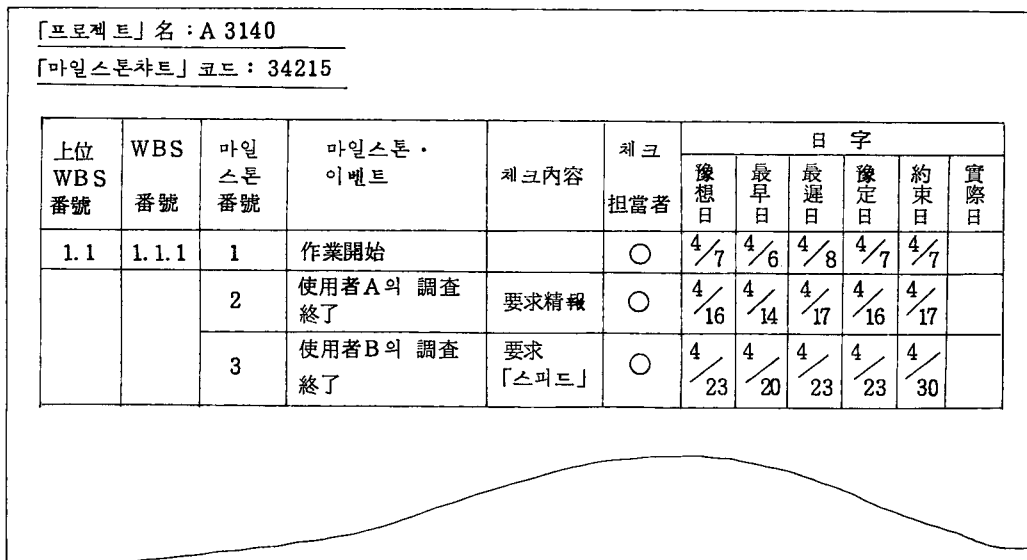 「프로젝트」名 : A 3140
「마일스톤챠트」코드 : 34215
上位 WBS 番號 WBS 番號 마일 스톤 番號 마일스톤 · 이벤트 체크內容 체크 担當者 日 字
豫想日 最早日 最遲日 豫定日 約束日 實際日
1.1 1.1.1 1 作業開始 ○ 4/7 4/6 4/8 4/7 4/7
2 使用者A의 調査 終了 要求精報 ○ 4/16 4/14 4/17 4/16 4/17
3 使用者B의 調査 終了 要求 「스피드」 ○ 4/23 4/20 4/23 4/23 4/30